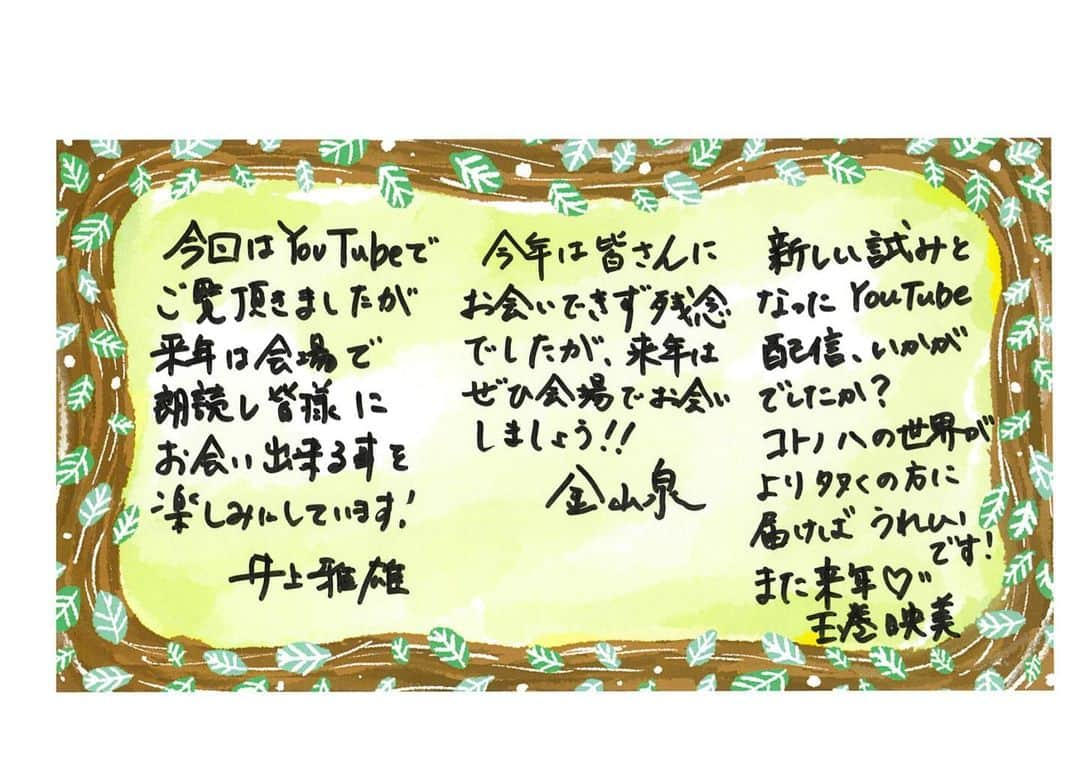 今回はYouTubeで
ご覧頂きましたが
来年は会場で
朗読し皆様に
お会い出来る事を
楽しみにしています!
井上雅雄
今年は皆さんに
お会いできず残念
でしたが、来年は
ぜひ会場でお会い
しましょう!!
金山泉
新しい試みと
なったYouTube
配信、いかが
でしたか?
コトノハの世界が
より多くの方に
届けば うれしい
です!
また来年♡
玉巻映美